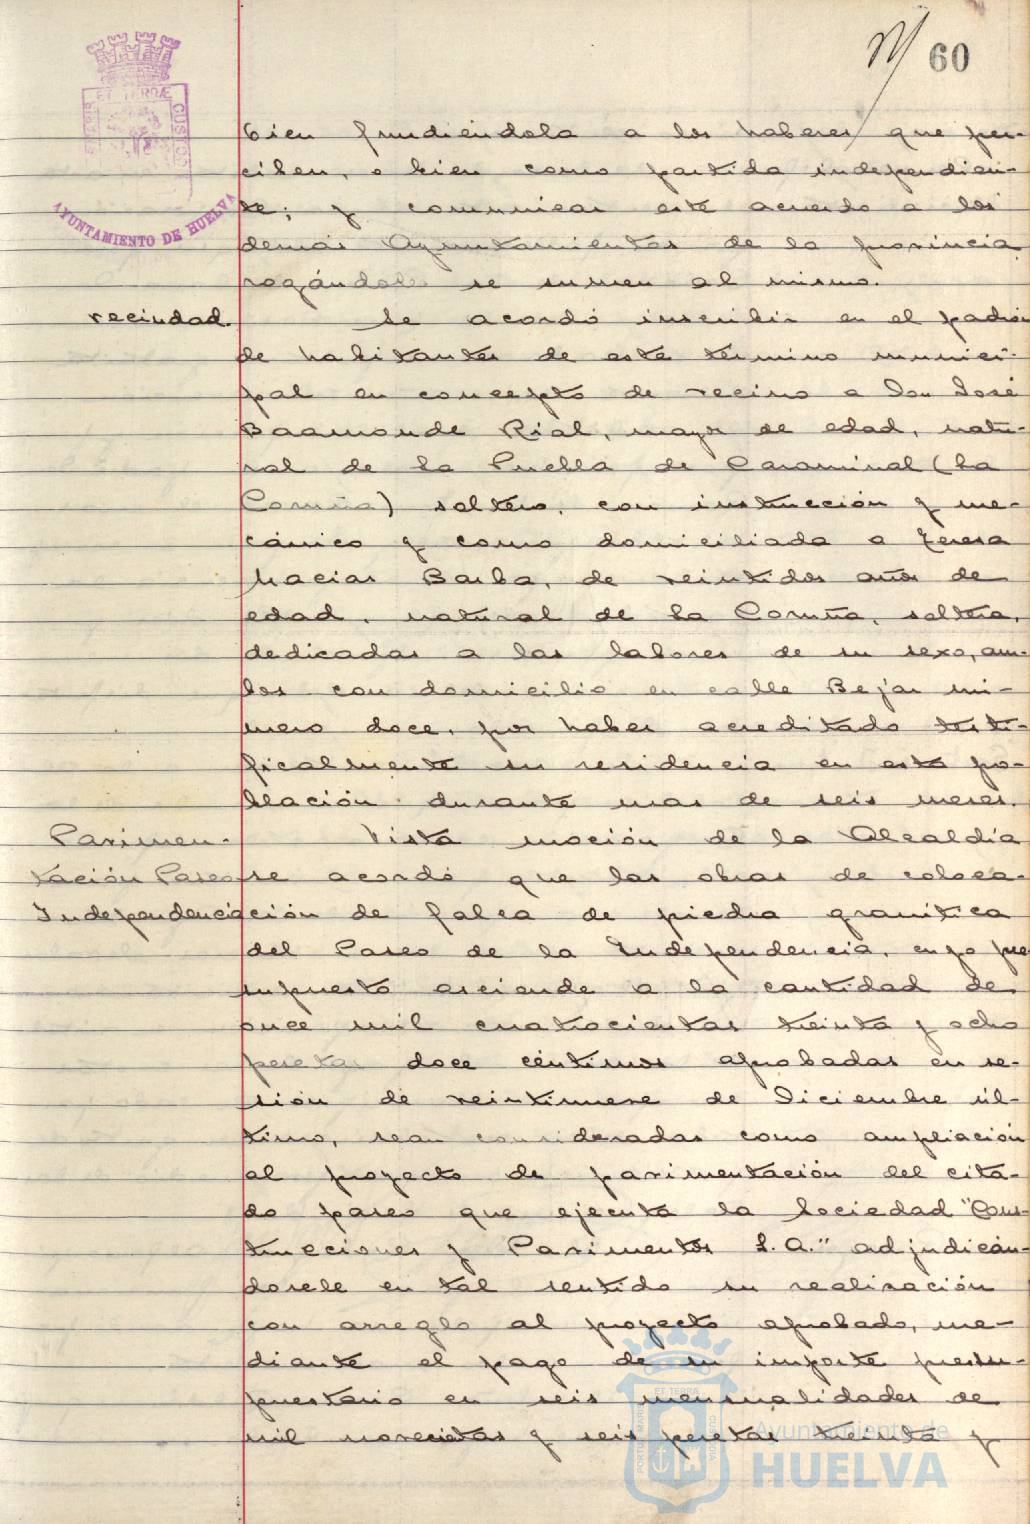 60
PORTUS MARIS ET TERRÆ CUSTODIA
AYUNTAMIENTO DE HUELVA
bien fundiéndola a los haberes que per-
ciben, o bien como partida independien-
te; y comunicar este acuerdo a los
demás Ayuntamientos de la provincia
rogándoles se sumen al mismo.
vecindad. Se acordó inscribir en el padrón
de habitantes de este término munici-
pal en concepto de vecino a Don José
Baamonde Rial, mayor de edad, natu-
ral de la Puebla de Caraminal (La
Coruña) soltero, con instrucción y me-
cánico y como domiciliada a Teresa
Macias Barba, de veintidos años de
edad, natural de la Coruña, soltera,
dedicadas a las labores de su sexo, am-
bos con domicilio en calle Bejar nú-
mero doce, por haber acreditado testi-
ficalmente su residencia en esta po-
blación durante mas de seis meses.
Pavimen- Vista moción de la Alcaldía
tación Paseo se acordó que las obras de coloca-
Independencia ción de falca de piedra granitica
del Paseo de la Independencia, cuyo pre
supuesto asciende a la cantidad de
once mil cuatrocientas treinta y ocho
pesetas doce céntimos aprobadas en se-
sión de veintinueve de Diciembre úl-
timo, sean consideradas como ampliación
al proyecto de pavimentación del cita-
do paseo que ejecuta la Sociedad "Cons-
trucciones y Pavimentos S.A." adjudicán-
dosele en tal sentido su realización
con arreglo al proyecto aprobado, me-
diante el pago de su importe presu-
puestario en seis mensualidades de
mil novecientas y seis pesetas treinta y
Ayuntamiento de
HUELVA